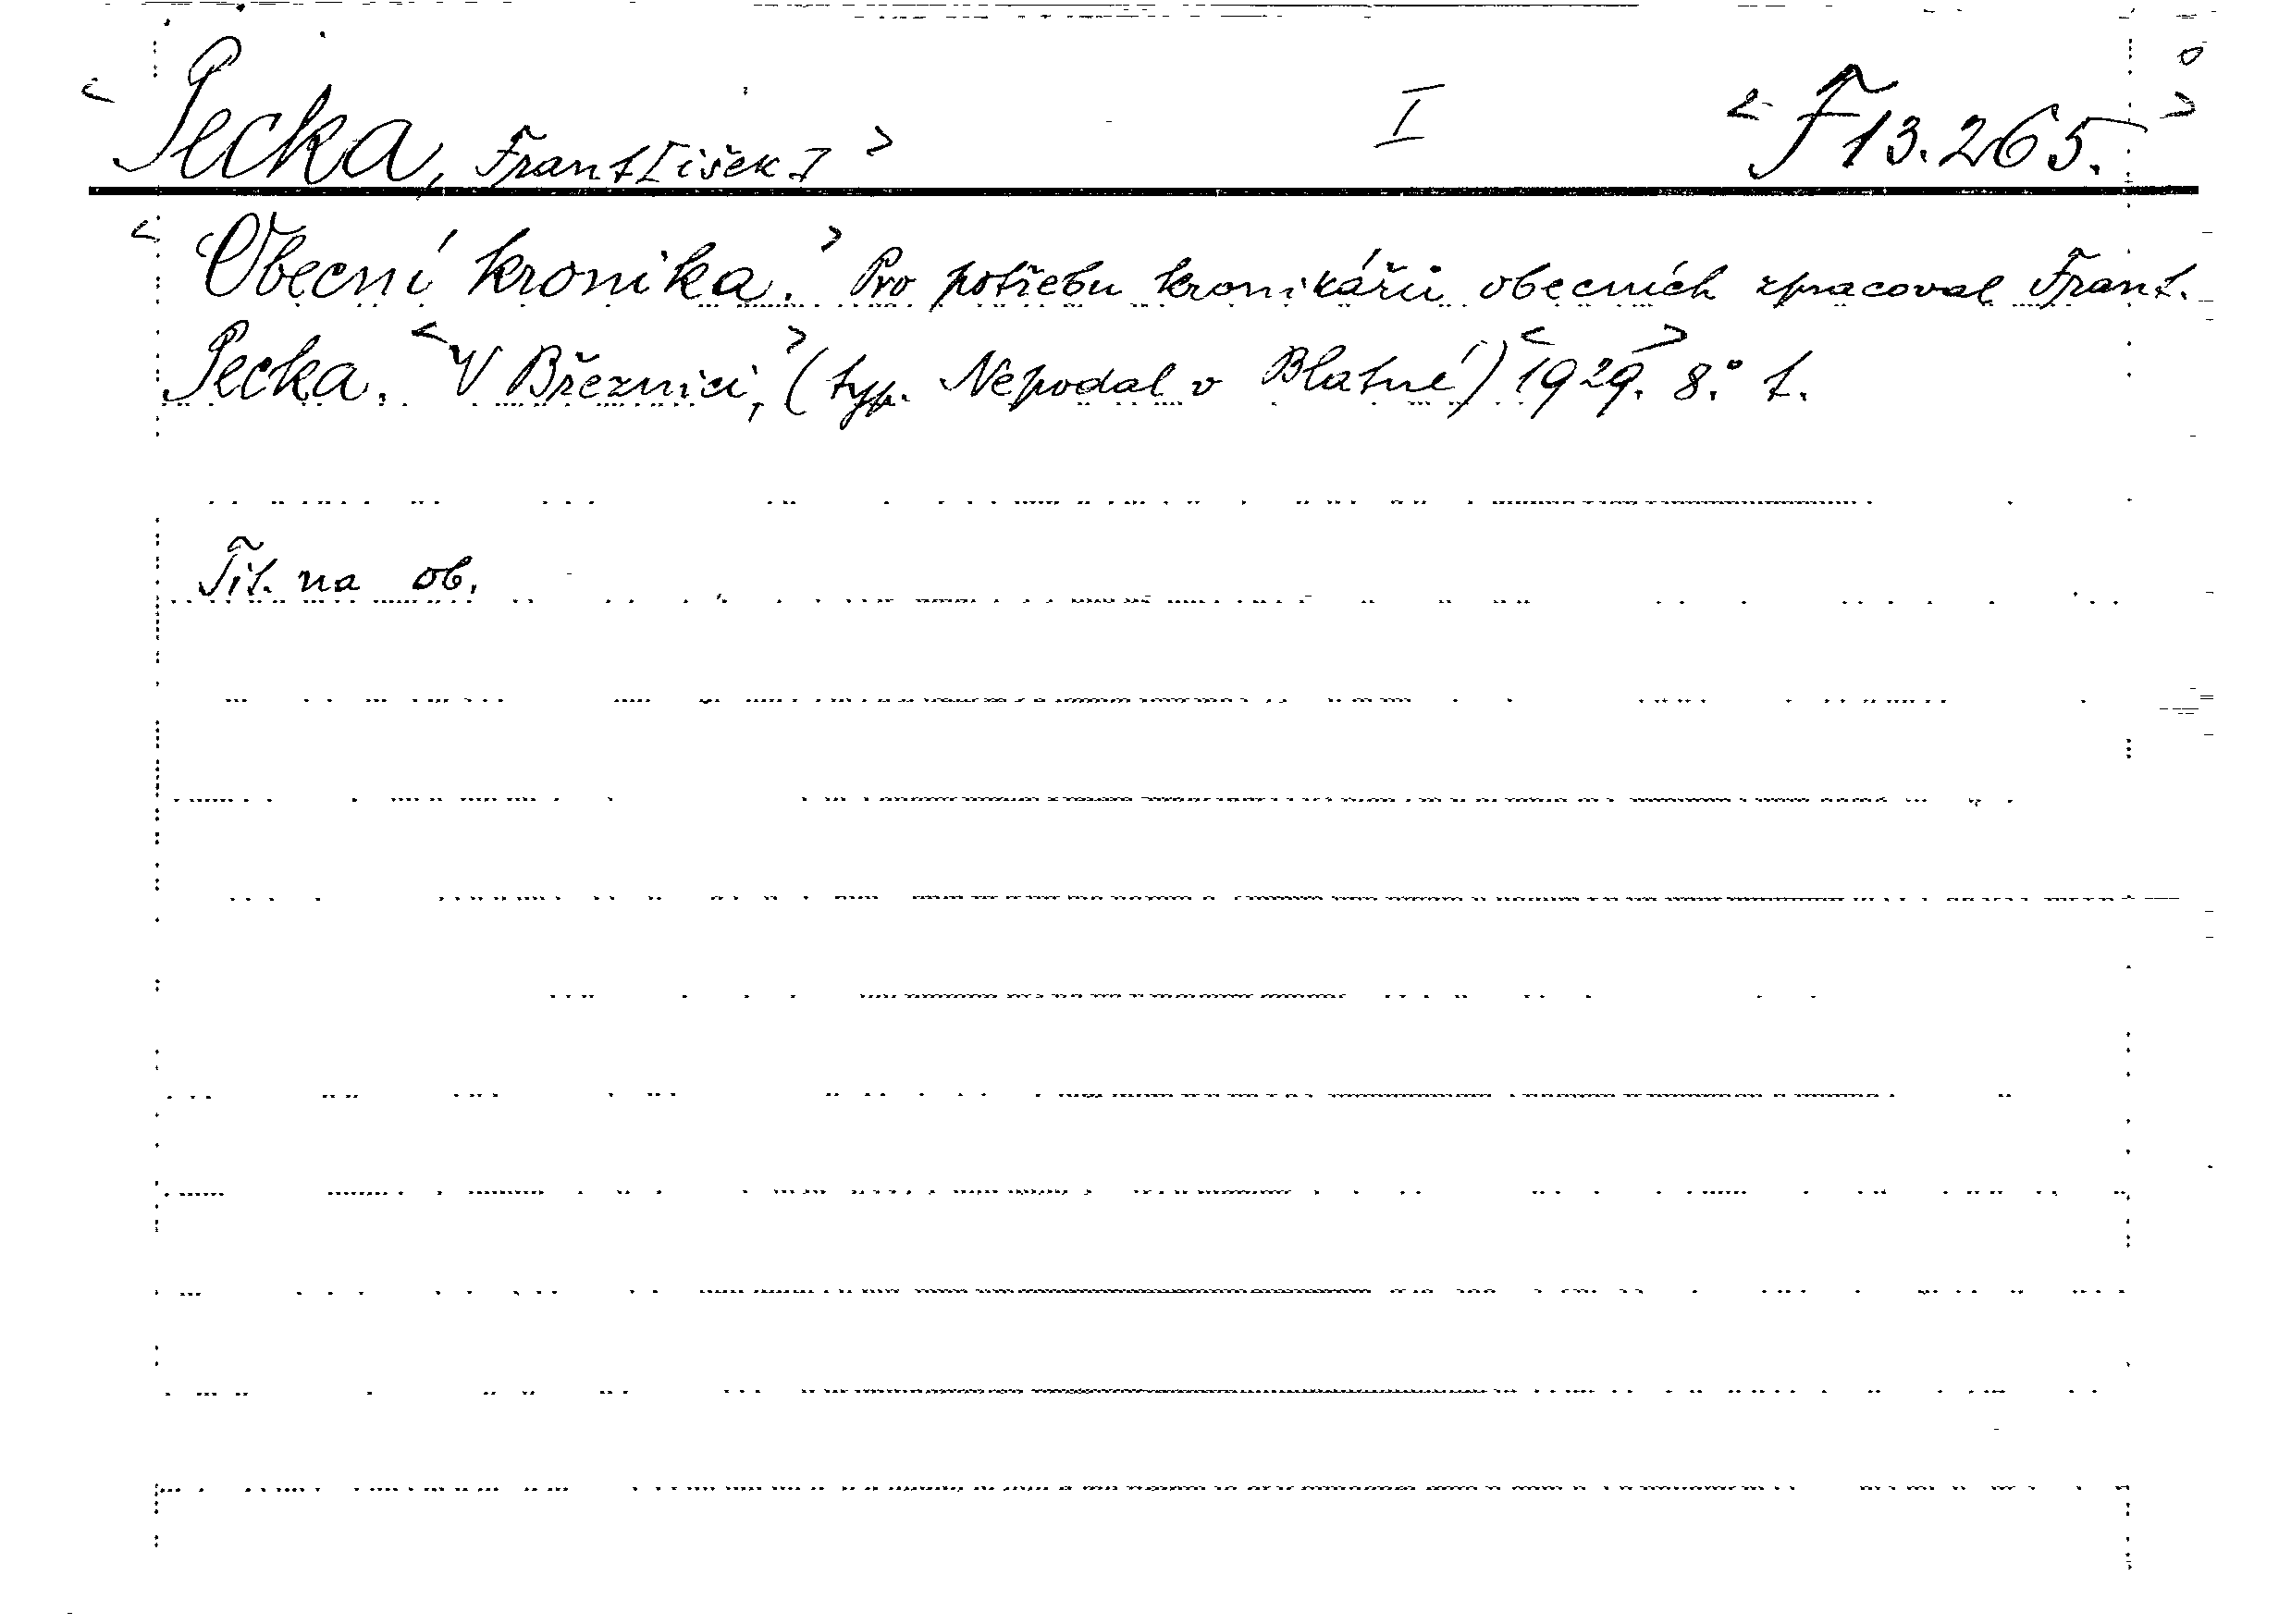 <Pecka, Frant[išek]> I <F 13.265.>
<Obecní kronika.> Pro potřebu kronikářů obecních zpracoval Frant.
Pecka. <V Březnici,> (typ. Nepodal v Blatné) <1929.> 8.° t.
Tit. na ob.